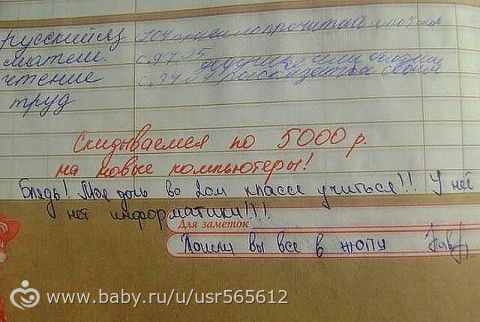 русский яз
матем. с.97 5
чтение с.34
труд
Скидываемся по 5000 р.
на новые компьютеры!
Блядь! Моя дочь во 2ом классе учиться!! У неё
нет информатики!!!!
Для заметок
Пошли вы все в жопу
www.baby.ru/u/usr565612